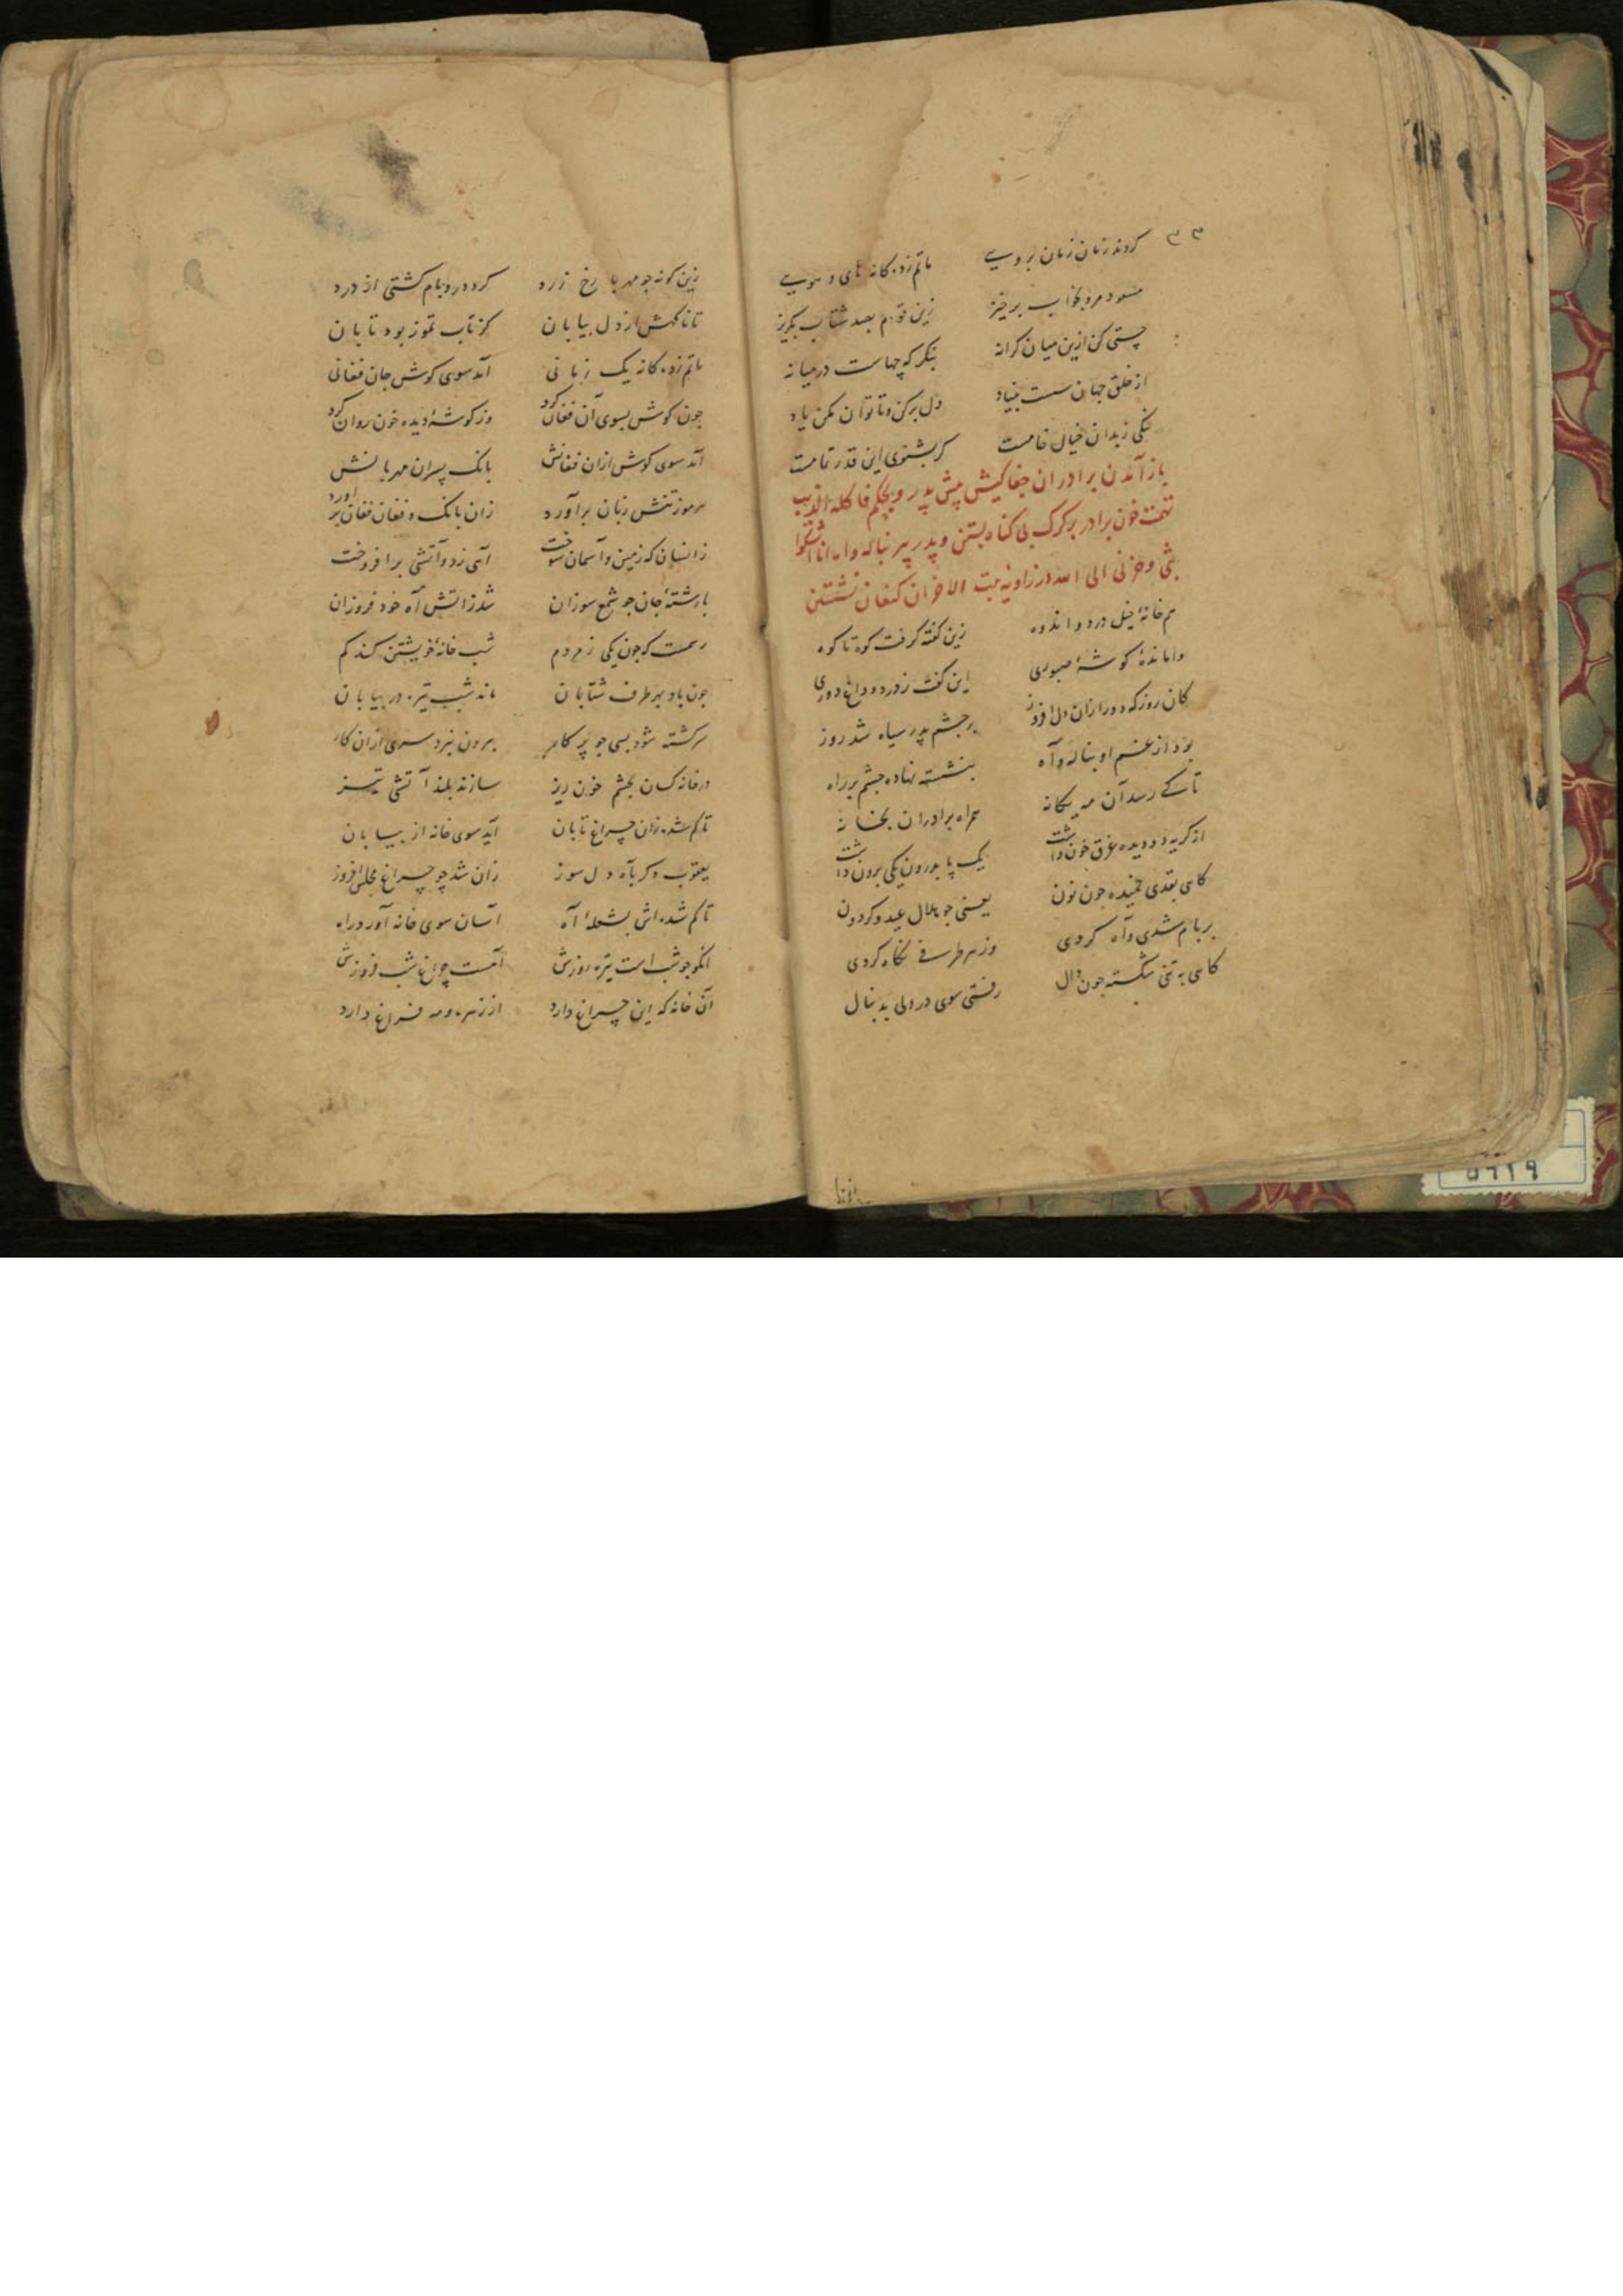 ۳۳
کردند زنان زنان بروی ماتم زده کانه های و هویی
مسعود مرو بخواب برخیز زین قوم بصد شتاب بگریز
چستی کن ازین میان کرانه بنکر که چهاست در میانه
از خلق جهان سست بنیاد دل برکن و تا توان مکن یاد
نیکی ز بدان خیال خامست کر بشنوی این قدر تمامست
باز آمدن برادران جفاکیش پیش پدر و بحکم فاکله الذیب
تهمت خون برادر بر کرک بی کناه بستن و پدر پیر بناله وا انما اشکوا
بثی و حزنی الی الله در زاویه بیت الاحزان کنعان نشستن
هم خانهٔ خیل درد و اندوه زین کفته کرفت کوه تا کوه
واماندهٔ کوشهٔ صبوری این کفت ز درد و داغ دوری
کان روز که دور ازان دل افروز بر چشم پدر سیاه شد روز
بود از غم او بناله و آه بنشسته نهاده چشم بر راه
تا کی رسد آن مه یکانه همراه برادران بخانه
از کریه دو دیده غرق خون داشت یک پا بدرون یکی برون داشت
کاهی بقدی خمیده چون نون یعنی چو هلال عید و کردون
بر بام شدی و آه کردی وز هر طرفی نکاه کردی
کاهی به تنی شکسته چون دال رفتی سوی در ولی بدنبال
زین کونه چو مهر با رخ زرد کرد در و بام کشتی از درد
تا ناکهش از دل بیابان کز تاب تموز بود تابان
ماتم زده کانه یک زبانی آمد سوی کوش جان فغانی
چون کوش بسوی آن فغان کرد وز کوشهٔ دیده خون روان کرد
آمد سوی کوش ازان فغانش بانک پسران مهربانش
هر موز تنش زبان برآورد زان بانک و فغان فغان برآورد
زانسان که زمین و آسمان سوخت آهی زد و آتشی برافروخت
با رشتهٔ جان چو شمع سوزان شد ز آتش آه خود فروزان
رسمست که چون یکی ز مردم شب خانهٔ خویشتن کند کم
چون باد بهر طرف شتابان ماند شب تیره در بیابان
سرکشته شود بسی چو پرکار بیرون نبرد سری ازان کار
در خانه کسان بچشم خون ریز سازند بلند آتشی تیز
تا کم شده زان چراغ تابان آید سوی خانه از بیابان
یعقوب دکر بآه دل سوز زان شد چو چراغ مجلس افروز
تا کم شده اش بشعلهٔ آه آسان سوی خانه آورد راه
انکو چو شب است تیره روزش آهست چراغ شب فروزش
آن خانه که این چراغ دارد از زهره و مه فراغ دارد
۵۶۱۹